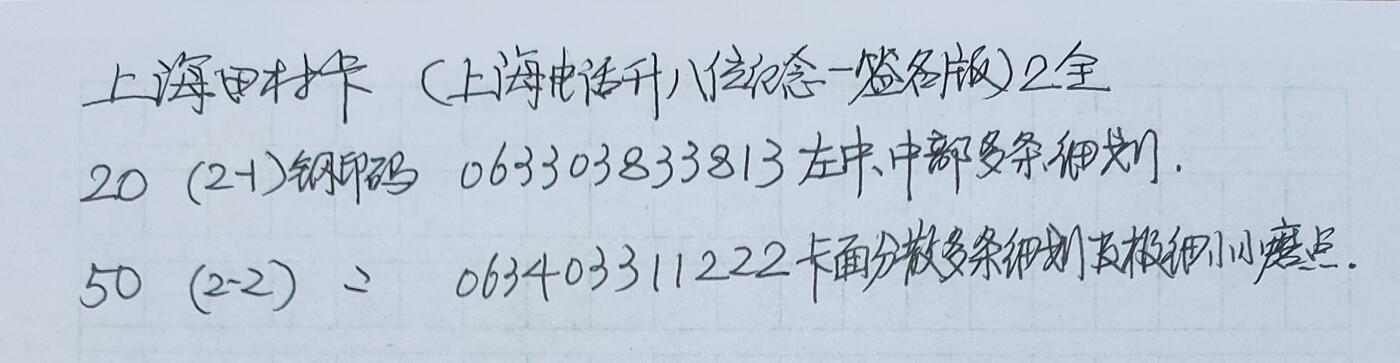 上海田村卡（上海电话升八位纪念一签名版）2全
20 (2-1)钢印码 063303833813左中、中部多条细划.
50 (2-2) 〃 063403311222卡面分散多条细划及极细小小磨点.